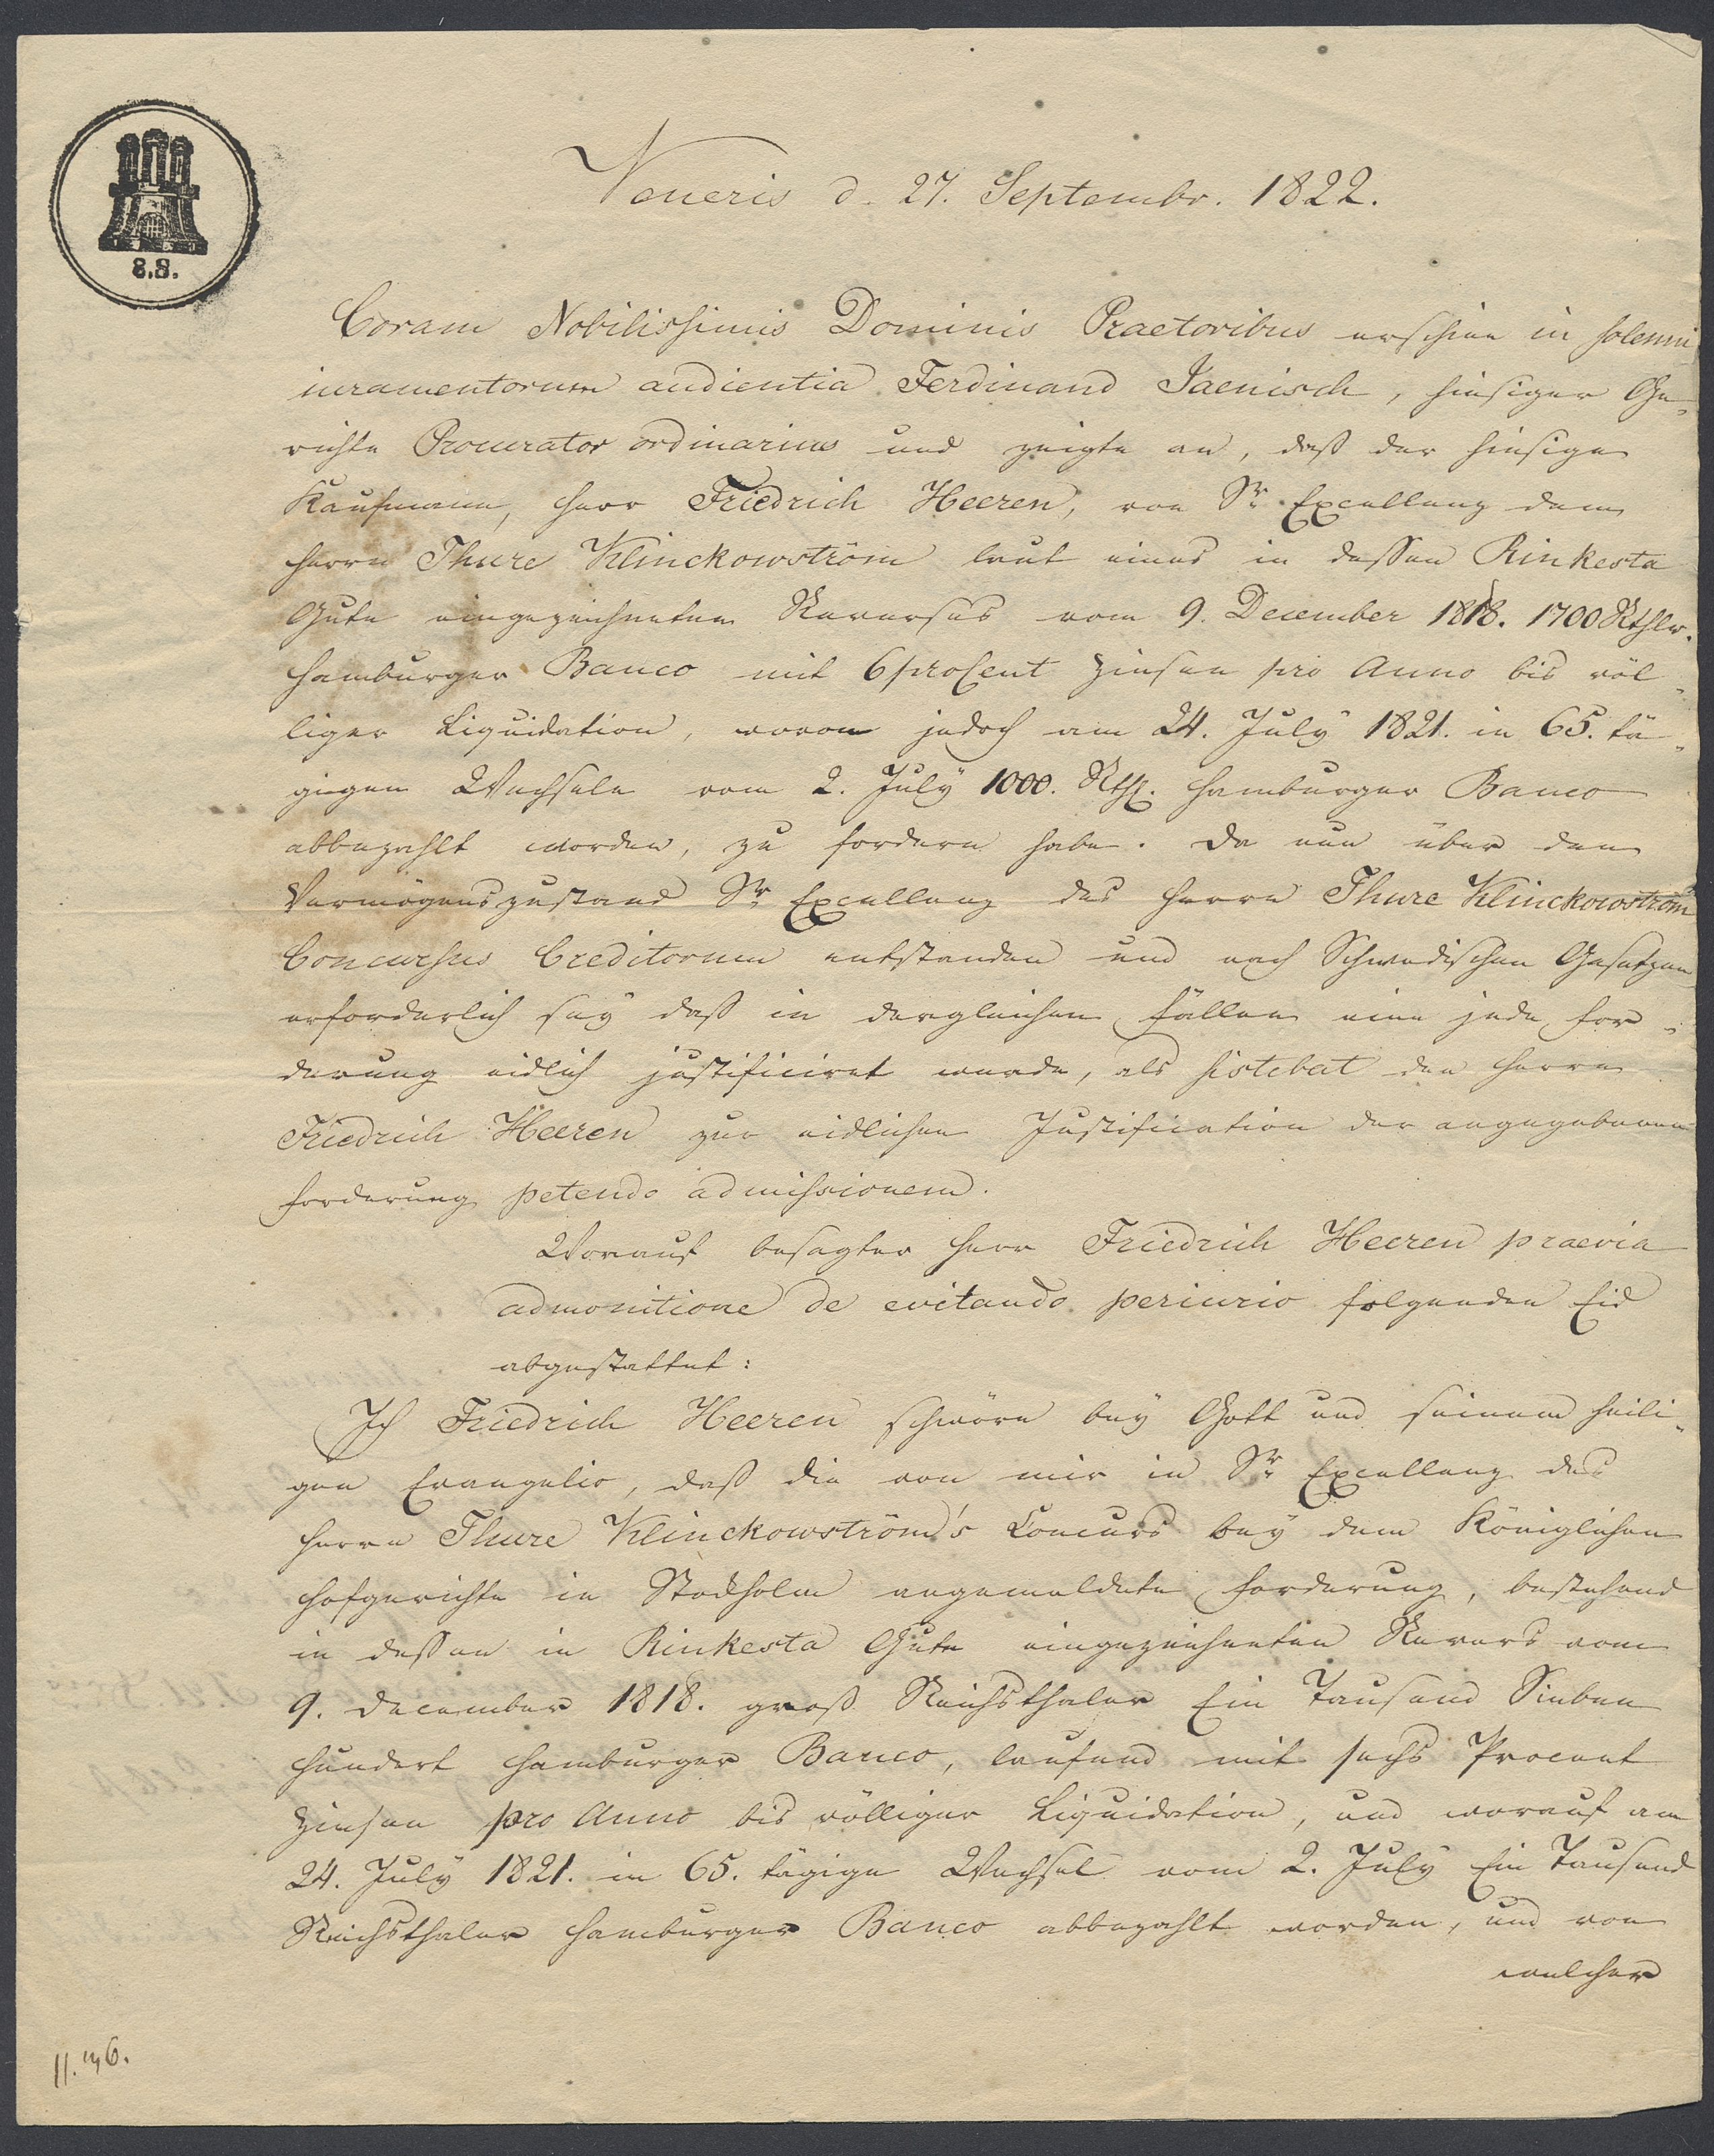 8.S.
Veneris d. 27. Septembr. 1822.
Coram Nobilissimis Dominis Praetoribus erschien in solemni
iuramentorum audientia Ferdinand Jaenisch, hiesiger Ge-
richte Procurator ordinarius und zeigte an, daß der hiesige
Kaufmann, Herr Friedrich Heeren, von Sr. Excellenz dem
Herrn Thure Klinckowström laut eines in dessen Rinkesta
Gute eingezeichneten Reverses vom 9. December 1818. 1700 Rthlr.
Hamburger Banco mit 6 proCent Zinsen pro Anno bis völ-
liger Liquidation, wovon jedoch am 24. July 1821. in 65. tä-
gigen Wechseln vom 2. July 1000. Rthl. Hamburger Banco
abbezahlt worden, zu fordern habe. Da nun über den
Vermögenszustand Sr. Excellenz des Herrn Thure Klinckowström
Concursus Creditorum entstanden und nach Schwedischen Gesetzen
erforderlich sey daß in dergleichen Fällen eine jede For-
derung eidlich justificiret werde, als sistebat den Herrn
Friedrich Heeren zur eidlichen Justification der angegebenen
Forderung petendo admissionem.
Worauf besagter Herr Friedrich Heeren praevia
admonitione de evitando periurio folgenden Eid
abgestattet:
Ich Friedrich Heeren schwöre bey Gott und seinem heili-
gen Evangelio, daß die von mir in Sr. Excellenz des
Herrn Thure Klinckowström's Concurs bey dem Königlichen
Hofgerichte in Stockholm angemeldete Forderung, bestehend
in dessen in Rinkesta Gute eingezeichneten Revers vom
9. December 1818. groß Reichsthaler Ein Tausend Sieben
Hundert Hamburger Banco, laufend mit sechs Procent
Zinsen pro Anno bis völliger Liquidation, und worauf am
24. July 1821. in 65. tägige Wechsel vom 2. July Ein Tausend
Reichsthaler Hamburger Banco abbezahlt worden, und von
welcher